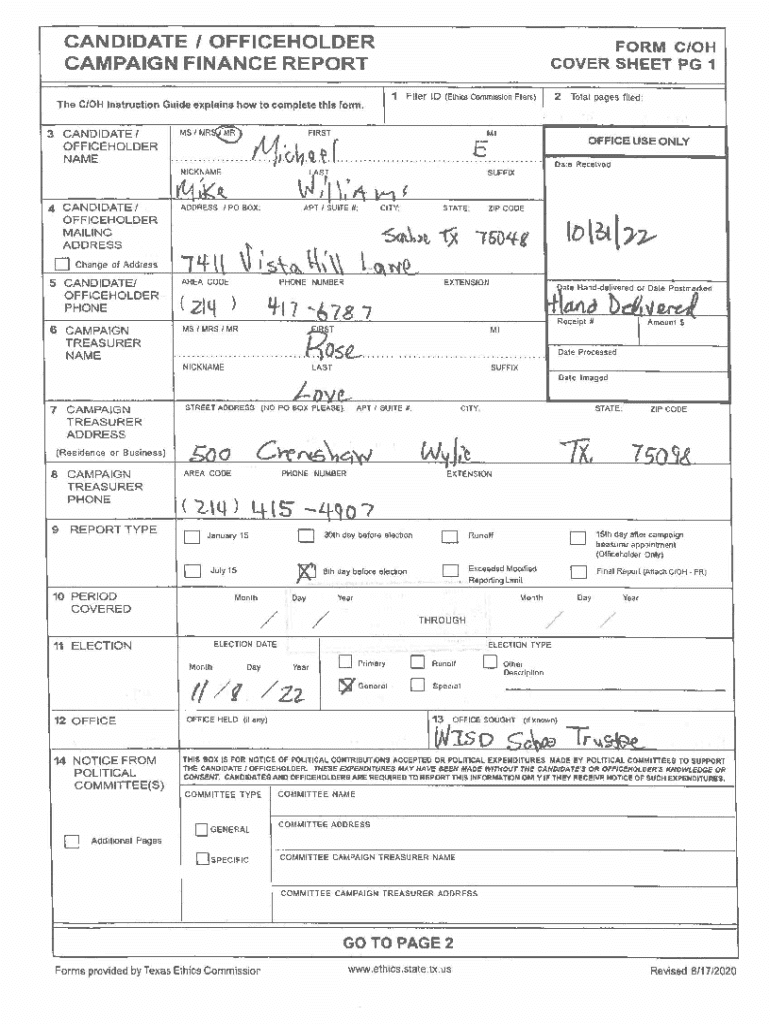 CANDIDATE / OFFICEHOLDER
CAMPAIGN FINANCE REPORT
FORM C/OH
COVER SHEET PG 1
The C/OH Instruction Guide explains how to complete this form.
1 Filer ID (Ethics Commission Filers)
2 Total pages filed:
3 CANDIDATE / OFFICEHOLDER NAME
MS / MRS / MR FIRST MI
Michael E
NICKNAME LAST SUFFIX
Mike Williams
OFFICE USE ONLY
Date Received
10/31/22
4 CANDIDATE / OFFICEHOLDER MAILING ADDRESS
Change of Address
ADDRESS / PO BOX; APT / SUITE #; CITY; STATE; ZIP CODE
TX 75048
7411 Vista Hill Lane
5 CANDIDATE/ OFFICEHOLDER PHONE
AREA CODE PHONE NUMBER EXTENSION
(214) 417-6787
Date Hand-delivered or Date Postmarked
Hand Delivered
Receipt # Amount $
Date Processed
Date Imaged
6 CAMPAIGN TREASURER NAME
MS / MRS / MR FIRST MI
Rose
NICKNAME LAST SUFFIX
Love
7 CAMPAIGN TREASURER ADDRESS
(Residence or Business)
STREET ADDRESS (NO PO BOX PLEASE); APT / SUITE #; CITY; STATE; ZIP CODE
500 Crenshaw Wylie TX. 75098
8 CAMPAIGN TREASURER PHONE
AREA CODE PHONE NUMBER EXTENSION
(214) 415-4907
9 REPORT TYPE
January 15
30th day before election
Runoff
15th day after campaign treasurer appointment (Officeholder Only)
July 15
8th day before election
Exceeded Modified Reporting Limit
Final Report (Attach C/OH - FR)
10 PERIOD COVERED
Month Day Year
/ /
THROUGH
Month Day Year
/ /
11 ELECTION
ELECTION DATE
Month Day Year
11/8/22
ELECTION TYPE
Primary
Runoff
Other Description
General
Special
12 OFFICE
OFFICE HELD (if any)
13 OFFICE SOUGHT (if known)
WISD Schoo Trustee
14 NOTICE FROM POLITICAL COMMITTEE(S)
Additional Pages
THIS BOX IS FOR NOTICE OF POLITICAL CONTRIBUTIONS ACCEPTED OR POLITICAL EXPENDITURES MADE BY POLITICAL COMMITTEES TO SUPPORT
THE CANDIDATE / OFFICEHOLDER. THESE EXPENDITURES MAY HAVE BEEN MADE WITHOUT THE CANDIDATE'S OR OFFICEHOLDER'S KNOWLEDGE OR
CONSENT. CANDIDATES AND OFFICEHOLDERS ARE REQUIRED TO REPORT THIS INFORMATION ONLY IF THEY RECEIVE NOTICE OF SUCH EXPENDITURES.
COMMITTEE TYPE
GENERAL
SPECIFIC
COMMITTEE NAME
COMMITTEE ADDRESS
COMMITTEE CAMPAIGN TREASURER NAME
COMMITTEE CAMPAIGN TREASURER ADDRESS
GO TO PAGE 2
Forms provided by Texas Ethics Commission
www.ethics.state.tx.us
Revised 8/17/2020